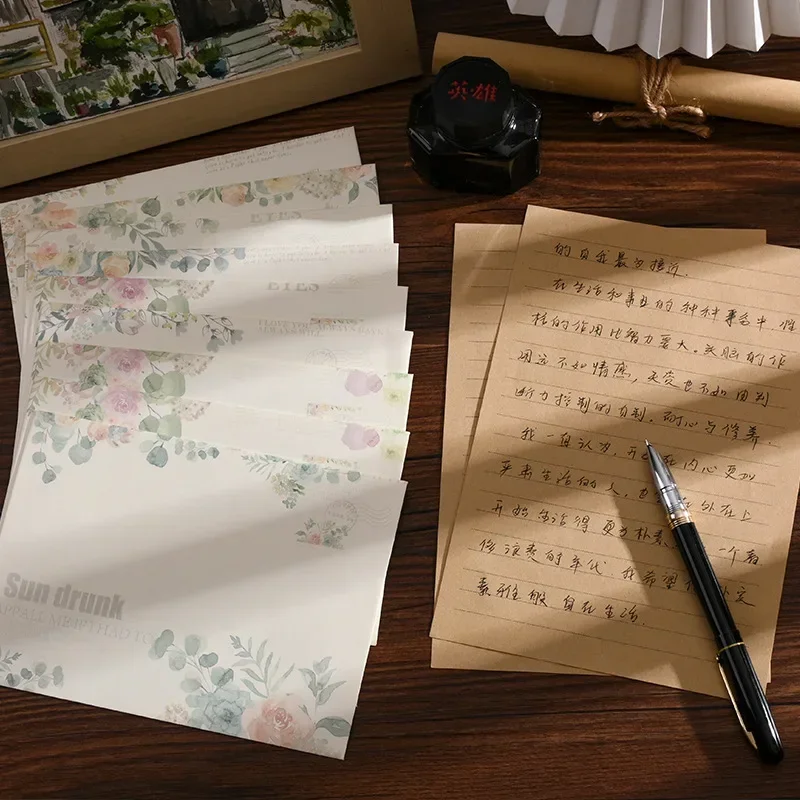 英雄
EIES
EIES
I LOVE YOU ALWAYS
Sun drunk
的自我最为接近.
在生活和事业的种种事务中 性
格的作用比智力要大。头脑的作
用远不如情感，天资也不如由判
断力控制的自制，耐心与修养。
我一直认为，开始在内心更加
严肃生活的人，也会在外在上
开始生活得更为朴素。 一个奢
侈浪费的年代 我希望
素雅般自在生活。